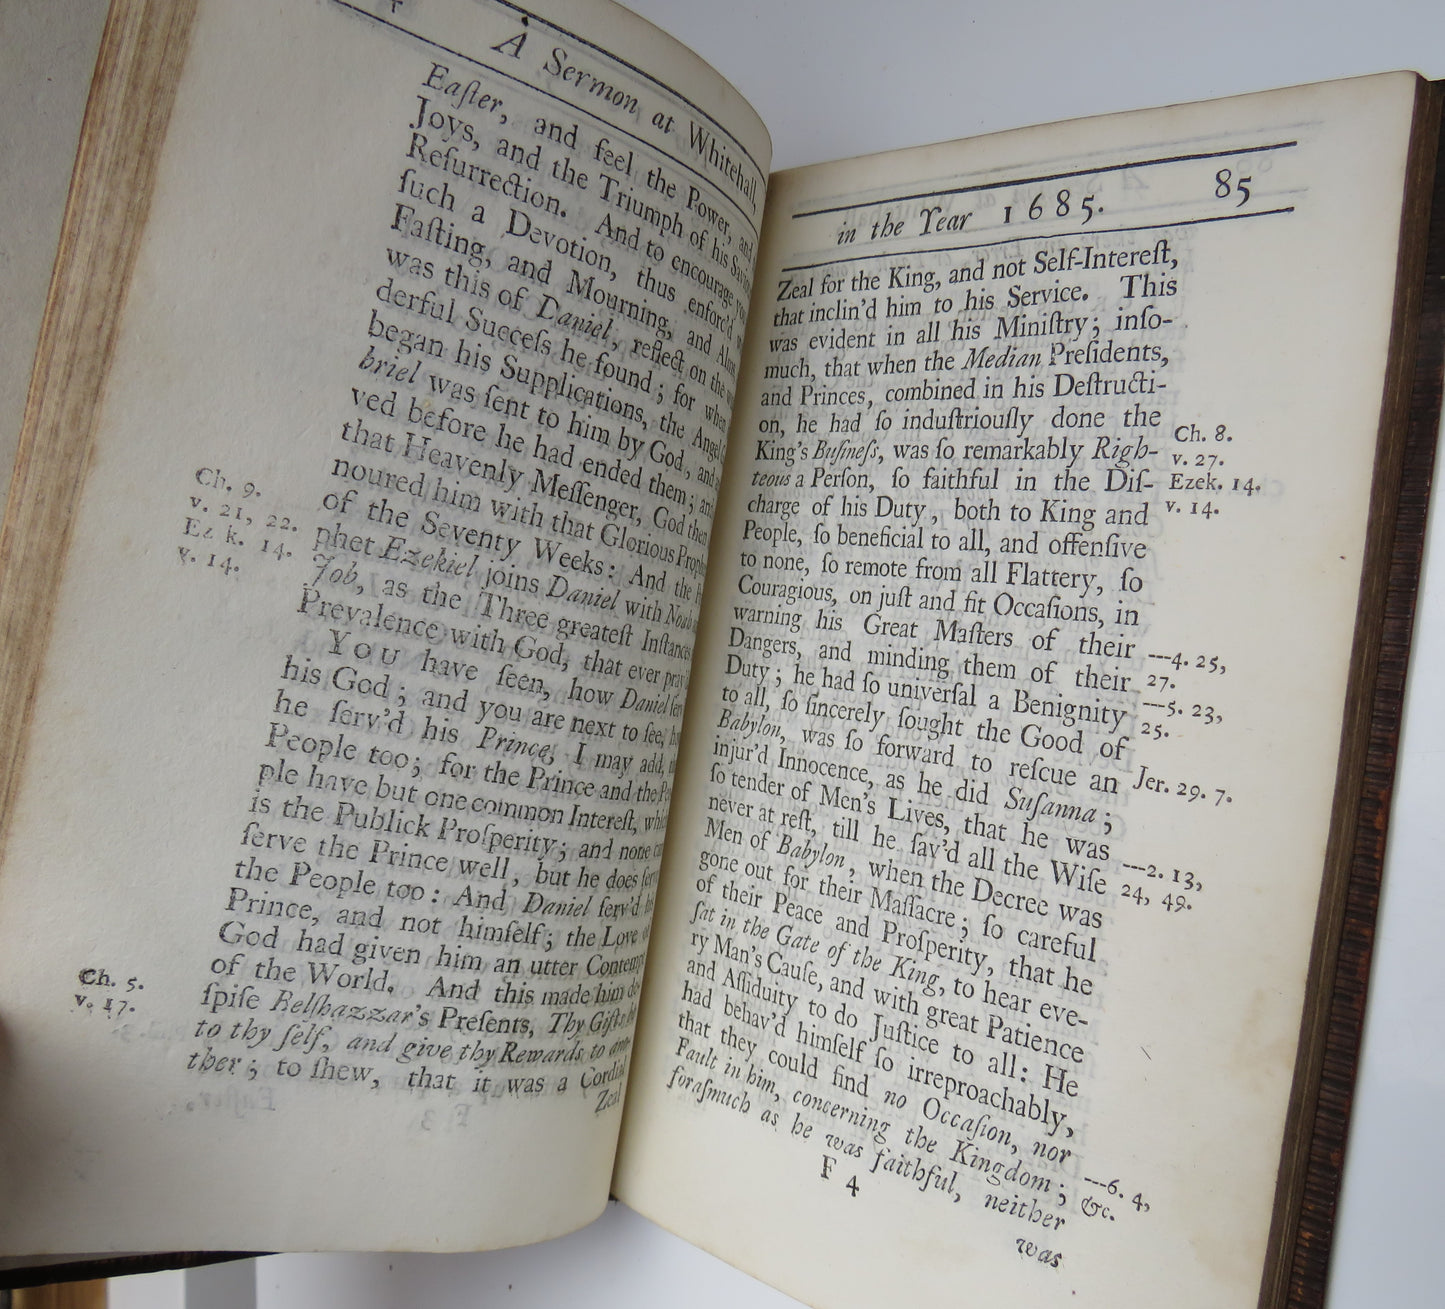 A Sermon at Whitehall,
Eaſter, and feel the Power, and
Joys, and the Triumph of his
Reſurrection. And to encourage you
ſuch a Devotion, thus enforc'd
Faſting, and Mourning, and
was this of Daniel, reflect on the
derful Succeſs he found; for when
began his Supplications, the Angel
briel was ſent to him by God, and
ved before he had ended them; and
that Heavenly Meſſenger, God then
noured him with that Glorious
of the Seventy Weeks: And the
phet Ezekiel joins Daniel with Noah
Job, as the Three greateſt
Prevalence with God, that ever
YOU have ſeen, how Daniel
his God; and you are next to ſee,
he ſerv'd his Prince, I may add,
People too; for the Prince and the
ple have but one common Intereſt,
is the Publick Proſperity; and none
ſerve the Prince well, but he does
the People too: And Daniel ſerv'd
Prince, and not himſelf; the Love
God had given him an utter
of the World. And this made him
ſpiſe Belſhazzar's Preſents, Thy Gifts
to thy ſelf, and give thy Rewards to
ther; to ſhew, that it was a Cordial
Zeal
Ch. 9.
v. 21, 22.
Ezek. 14.
v. 14.
Ch. 5.
v. 17.
in the Year 1685. 85
Zeal for the King, and not Self-Intereſt,
that inclin'd him to his Service. This
was evident in all his Miniſtry; inſo-
much, that when the Median Preſidents,
and Princes, combined in his Deſtructi-
on, he had ſo induſtriouſly done the
King's Buſineſs, was ſo remarkably Righ-
teous a Perſon, ſo faithful in the Diſ-
charge of his Duty, both to King and
People, ſo beneficial to all, and offenſive
to none, ſo remote from all Flattery, ſo
Couragious, on juſt and fit Occaſions, in
warning his Great Maſters of their
Dangers, and minding them of their
Duty; he had ſo univerſal a Benignity
to all, ſo ſincerely ſought the Good of
Babylon, was ſo forward to reſcue an
injur'd Innocence, as he did Suſanna;
ſo tender of Men's Lives, that he was
never at reſt, till he ſav'd all the Wiſe
Men of Babylon, when the Decree was
gone out for their Maſſacre; ſo careful
of their Peace and Proſperity, that he
ſat in the Gate of the King, to hear eve-
ry Man's Cauſe, and with great Patience
and Aſſiduity to do Juſtice to all: He
had behav'd himſelf ſo irreproachably,
that they could find no Occaſion, nor
Fault in him, concerning the Kingdom;
foraſmuch as he was faithful, neither
F 4
was
Ch. 8.
v. 27.
Ezek. 14.
v. 14.
---4. 25,
27.
---5. 23,
25.
Jer. 29. 7.
---2. 13,
24, 49.
---6. 4,
&c.